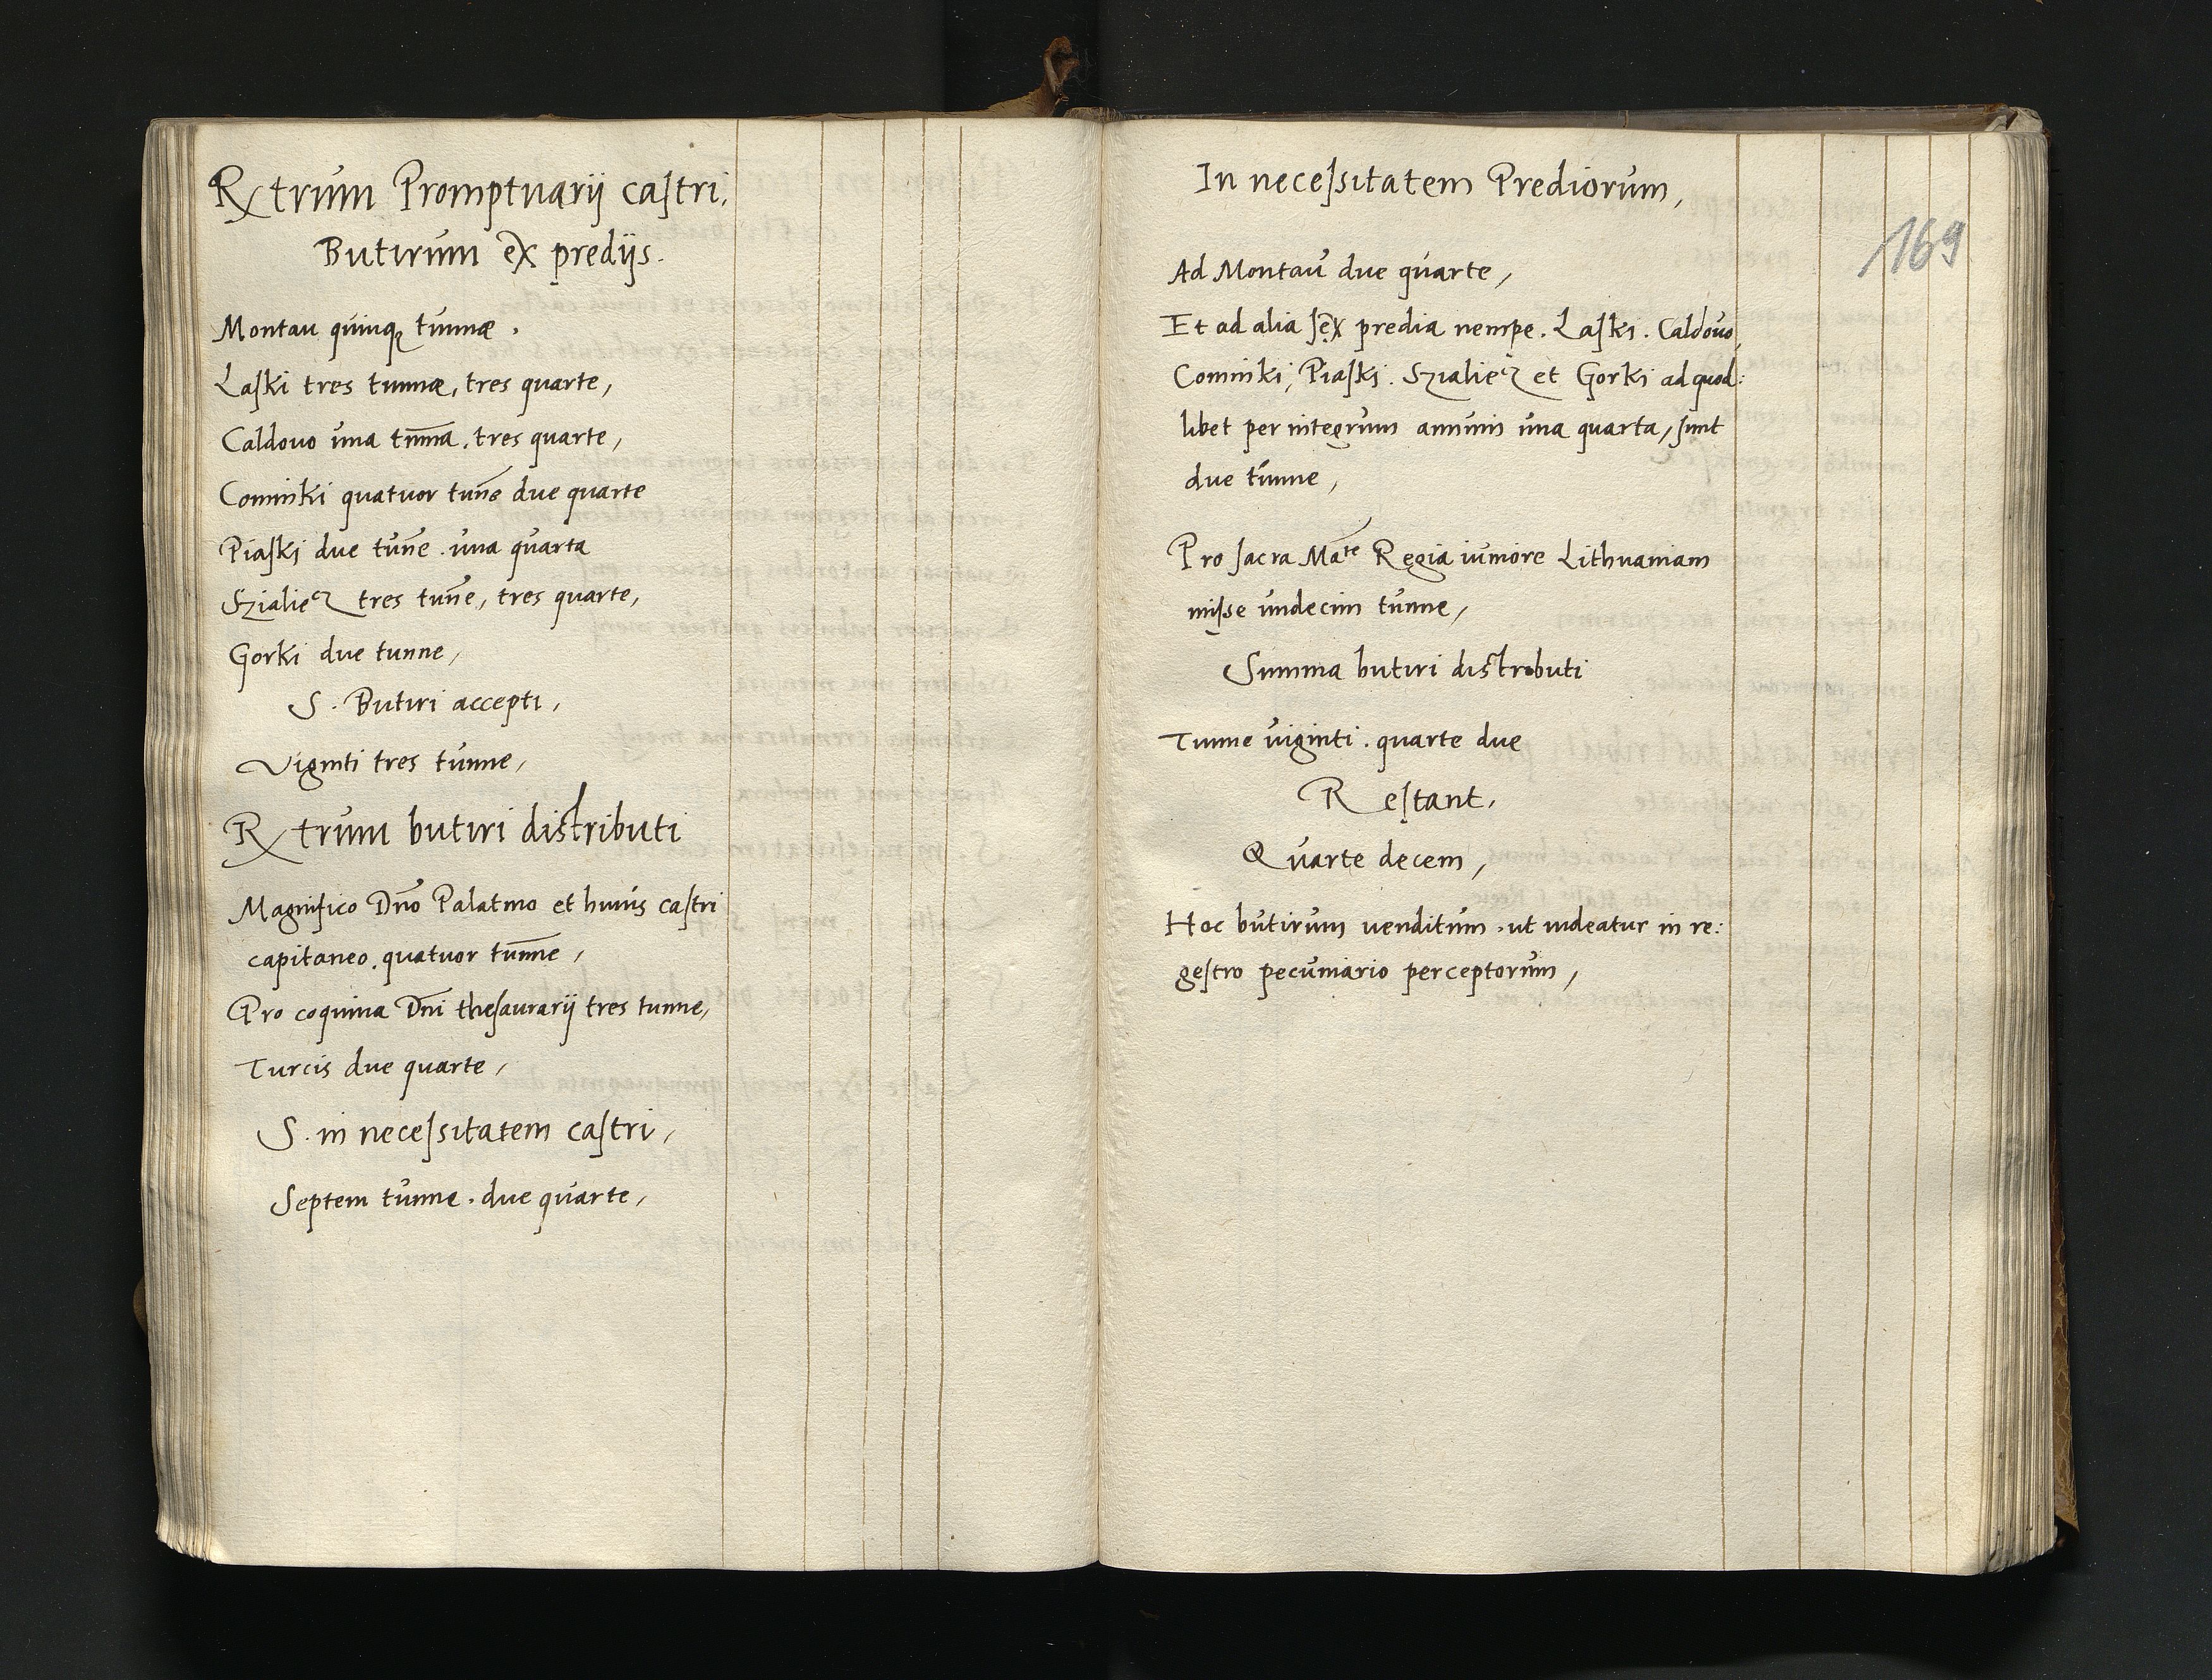 Rxtrum Promptuarij castri.
Butirum ex predijs.
Montau quinq tunnæ.
Laski tres tunnæ, tres quarte,
Caldouo una tūna. tres quarte,
Cominki quatuor tūne due quarte
Piaski due tūne. una quarta
Szialiecz tres tūne, tres quarte,
Gorki due tunne,
S. Butiri accepti,
Viginti tres tunne,
Rxtrum butiri distributi
Magnifico Dno Palatino et huius castri
capitaneo. quatuor tunne,
Pro coquina Dni thesaurarij tres tunne,
Turcis due quarte,
S. in necessitatem castri,
Septem tunne. due quarte,
In necessitatem Prediorum,
169
Ad Montau due quarte,
Et ad alia sex predia nempe. Laski. Caldouo,
Cominki, Piaski. Szialiecz et Gorki ad quod:
libet per integrum annum una quarta, sunt
due tunne,
Pro sacra Mate Regia iuniore Lithuaniam
misse undecim tunne,
Summa butiri distributi
Tunne uiginti. quarte due
Restant,
Quarte decem,
Hoc butirum uenditum. ut uideatur in re:
gestro pecuniario perceptorum,